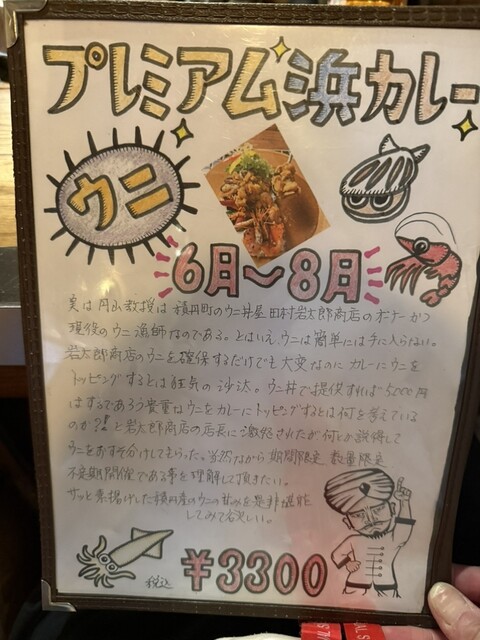 プレミアム浜カレー
ウニ
6月〜8月
実は円山教授は積丹町のウニ丼屋田村岩太郎商店のオーナーかつ
現役のウニ漁師なのである。とはいえ、ウニは簡単には手に入らない。
岩太郎商店のウニを確保するだけでも大変なのにカレーにウニを
トッピングするとは狂気の沙汰。ウニ丼で提供すれば5000円
はするであろう貴重なウニをカレーにトッピングするとは何を考えている
のか?!と岩太郎商店の店長に激怒されたが何とか説得して
ウニをおすそ分けしてもらった。当然ながら期間限定 数量限定
不定期開催である事を理解して頂きたい。
サッと素揚げした積丹産のウニの甘みを是非堪能
してみて欲しい。
税込
¥3300